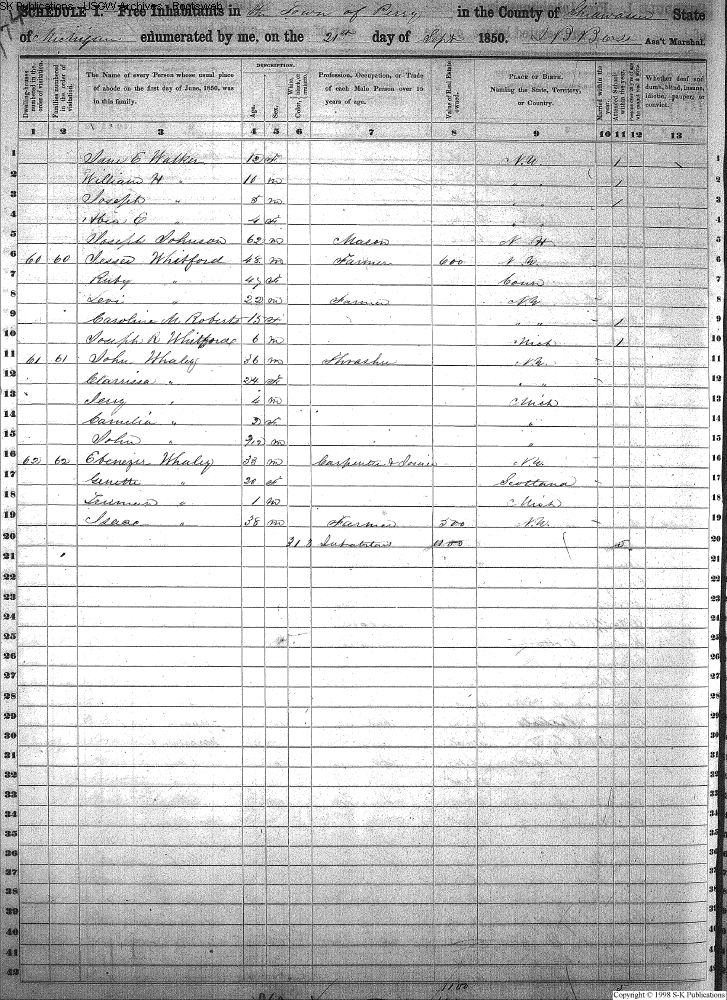 SK Publications - USGW Archives - Rootsweb
SCHEDULE I. Free Inhabitants in the Town of Perry in the County of Shiawassee State
of Michigan enumerated by me, on the 21st day of Sept 1850. Ass't Marshal.
DESCRIPTION.
Dwelling-houses numbered in the order of visitation.
Families numbered in the order of visitation.
The Name of every Person whose usual place of abode on the first day of June, 1850, was in this family.
Age.
Sex.
White, black, or mulatto. Color,
Profession, Occupation, or Trade of each Male Person over 15 years of age.
Value of Real Estate owned.
PLACE OF BIRTH, Naming the State, Territory, or Country.
Married within the year.
Attended School within the year.
Whether deaf and dumb, blind, insane, idiotic, pauper, or convict.
1 2 3 4 5 6 7 8 9 10 11 12 13
1 Jane E Walker 12 f N.Y. 1
2 William H " 10 m " " 1 2
3 Joseph " 8 m " " 1 3
4 E " 4 f " 4
5 Joseph Johnson 62 m Mason N. H 5
6 60 60 Whitford 48 m Farmer 600 N.Y. 6
7 Ruby " 47 f Conn 7
8 Levi " 22 m Farmer N.Y. 8
9 Caroline M. Roberts 15 f " " 1 9
10 Joseph R Whitford 6 m Mich 1 10
11 61 61 John Whaley 36 m Thrasher N.Y. 11
12 Clarrissa " 24 f " " 12
13 " 4 m Mich 13
14 Camelia " f " 14
15 John " m " 15
16 62 62 Ebenezer Whaley 38 m Carpenter & Joiner N.Y. 16
17 Genette " 20 f Scotland 17
18 " 1 m Mich 18
19 Isaac " 38 m Farmer 500 N.Y. 19
20 20
21 21
22 22
23 23
24 24
25 25
26 26
27 27
28 28
29 29
30 30
31 31
32 32
33 33
34
35
36
37
38
39
40
41
42
1100
Copyright © 1998 S-K Publications